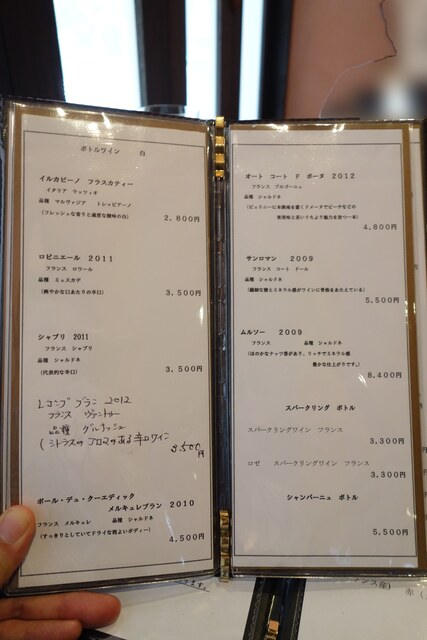 ボトルワイン 白
イルカピーノ フラスカティー
イタリア ラッツィオ
品種 マルヴァジア トレッビアーノ
(フレッシュな香りと適度な酸味の白)
2.800円
ロビニエール 2011
フランス ロワール
品種 ミュスカデ
(爽やかな口あたりの辛口)
3.500円
シャブリ 2011
フランス シャブリ
品種 シャルドネ
(代表的な辛口)
3.500円
ブラン 2012
フランス ヴァントゥー
品種
(シトラスのアロマのある辛口ワイン
3.500円
ポール・デュ・クーエディック
メルキュレブラン 2010
フランス メルキュレ 品種 シャルドネ
(すっきりとしていてドライな程よいボディー)
4.500円
オート コート ド ボーヌ 2012
フランス ブルゴーニュ
品種 シャルドネ
4.800円
サンロマン 2009
フランス コート ドール
品種 シャルドネ
(繊細な酸とミネラル感がワインに骨格をあたえている)
5.500円
ムルソー 2009
フランス 品種 シャルドネ
(ほのかなナッツ香があり、リッチでミネラル感
豊かな仕上がりです。)
8.400円
スパークリング ボトル
スパークリングワイン フランス
3.300円
ロゼ スパークリングワイン フランス
3.300円
シャンパーニュ ボトル
5.500円
ます。
ンス産)
赤(